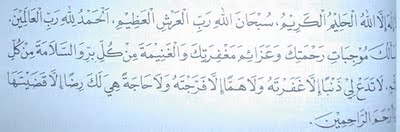 إِلَّا اللهُ الْحَلِيمُ الْكَرِيمُ، سُبْحَانَ اللهِ رَبِّ الْعَرْشِ الْعَظِيمِ، اَلْحَمْدُ لِلّٰهِ رَبِّ الْعَالَمِينَ.
مُوجِبَاتِ رَحْمَتِكَ وَعَزَائِمَ مَغْفِرَتِكَ وَالْغَنِيمَةَ مِنْ كُلِّ بِرٍّ وَالسَّلَامَةَ مِنْ كُلِّ
لَا تَدَعْ لِي ذَنْبًا إِلَّا غَفَرْتَهُ وَلَا هَمًّا إِلَّا فَرَّجْتَهُ وَلَا حَاجَةً هِيَ لَكَ رِضًا إِلَّا قَضَيْتَهَا
رْحَمَ الرَّاحِمِينَ.